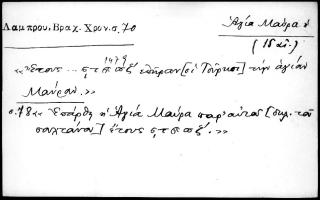 Λάμπρου, Βραχ. Χρον. σ. 70
Ἁγία Μαύρα
(15 αἰ.)
1479
«« Ἔτους ... ςϡπζ ἐπῆραν [οἱ Τοῦρκοι] τὴν ἁγίαν
Μαύραν. »»
σ. 78 «« Ἐπάρθη ἡ Ἁγία Μαύρα παρ' αὐτοῦ [δηλ. τοῦ
σουλτάνου] ἔτους ςϡπζ. »»